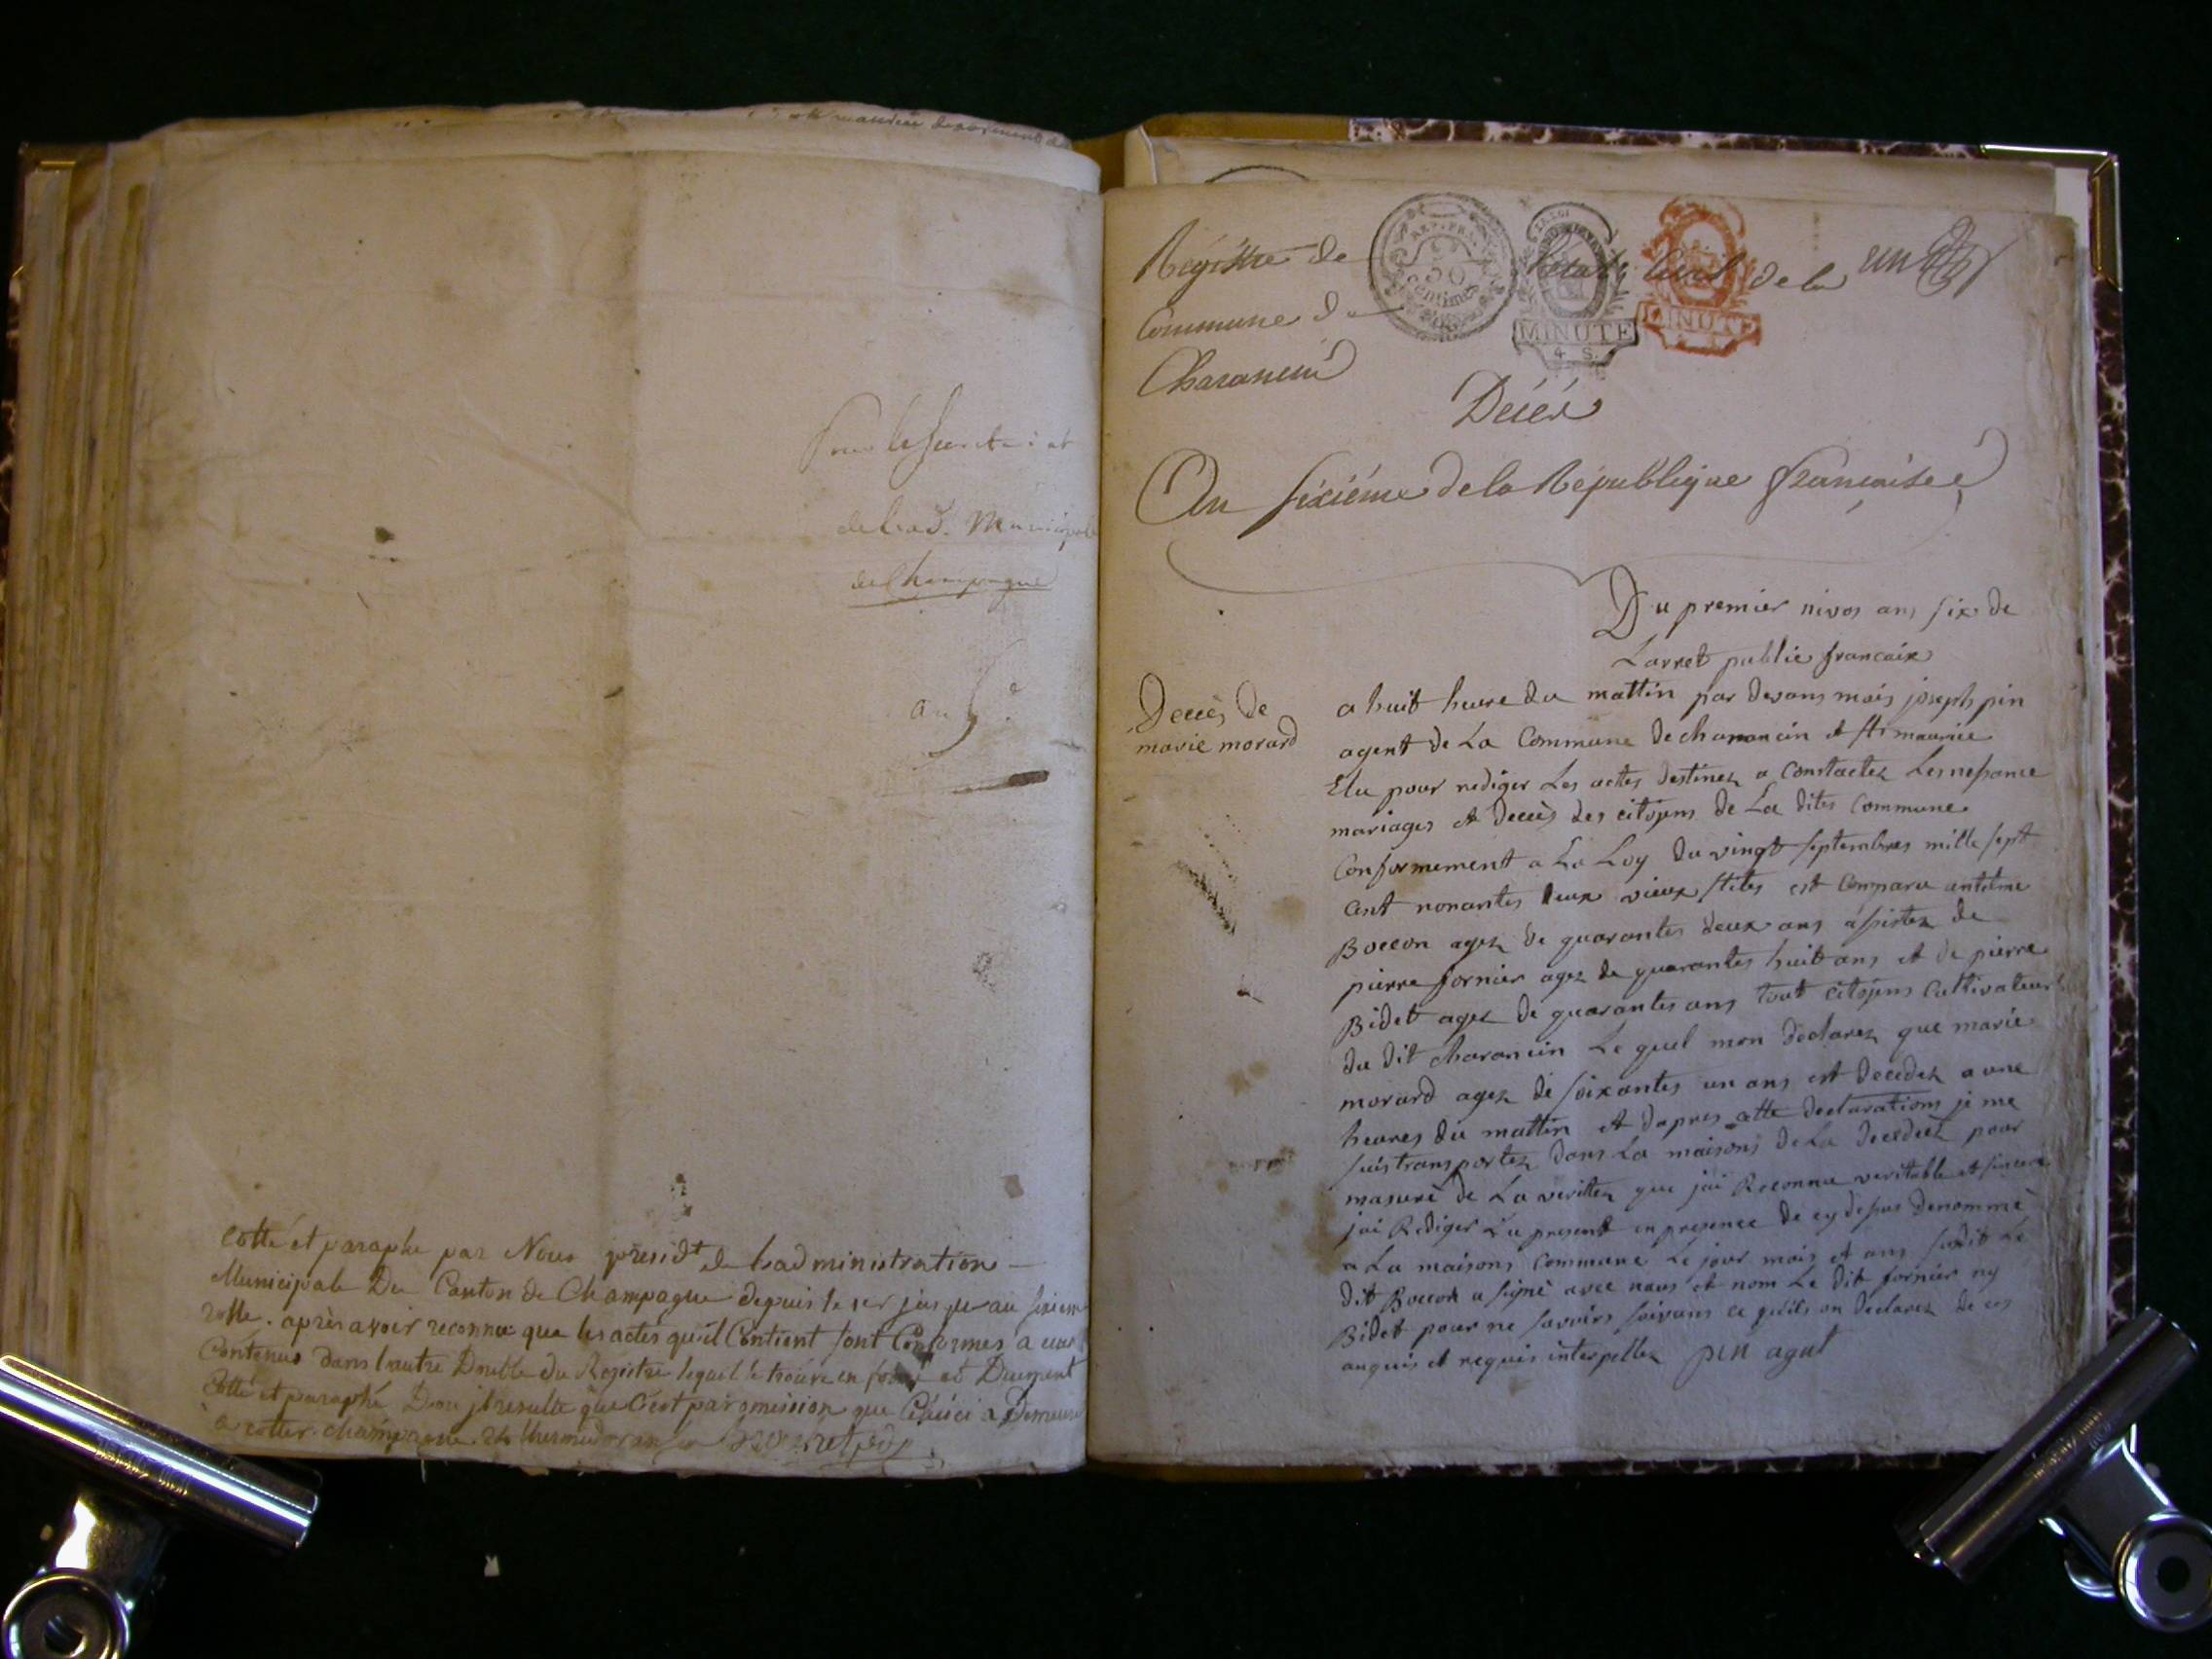 Pour le secretariat
de Lad. Municipale
de Champagne
an 6e
Cotté et paraphe par Nous présidt de Ladministration
Municipale Du Canton de Champagne depuis le 1er jusqu'au sixieme
rolle. après avoir reconnu que les actes qu'il Contient sont Conformes a ceux
Contenus dans l'autre Double du Registre lequel se trouve en forme et Duement
Cotté et paraphé D'ou il resulte que C'est par omission que Celuici a Demeuré
a cotter. champagne. 24 thermidor an
Régistre de Letat Civil de la un
Commune de
Charancin
REP. FRA.
50
centimes
LA LOI
MINUTE
4. S.
MINUTE
Décés
An sixiéme de la République françoise
Du premier nivos ans six de
Larret public francaix
Deccès de
marie morard
a huit heure du mattin par devans mois joseph pin
agent de La Commune de charancin et st maurice
Elu pour rediger Les actes destinez a Constactez Les nesance
mariages et deccès des citojens de La dites Commune
Conformement a La Loy du vingt septembres mille sept
cent nonantes deux vieux stiles est Comparu antelme
Boccon agez de quarantes deux ans asistez de
pierre fornier agez de quarantes huit ans et de pierre
Bidet agez de quarantes ans tout citojens Cultivateurs
du dit charancin Le quel mon declarez que marie
morard agez de soixantes un ans est decedez a une
heures du mattin et dapres cette declarations je me
suis transportez dans La maisons de La decedeez pour
masuré de La veritez que jai Reconnu veritable et sincere
jai Rediger Lu present en presence de cy desus denommé
a La maisons Commune Le jour mois et ans susdit Le
dit Boccon a signé avec nous et nom Le dit fornier ny
Bidet pour ne savoirs soivans ce quils on declarez de ces
anquis et requis interpellez pin agent